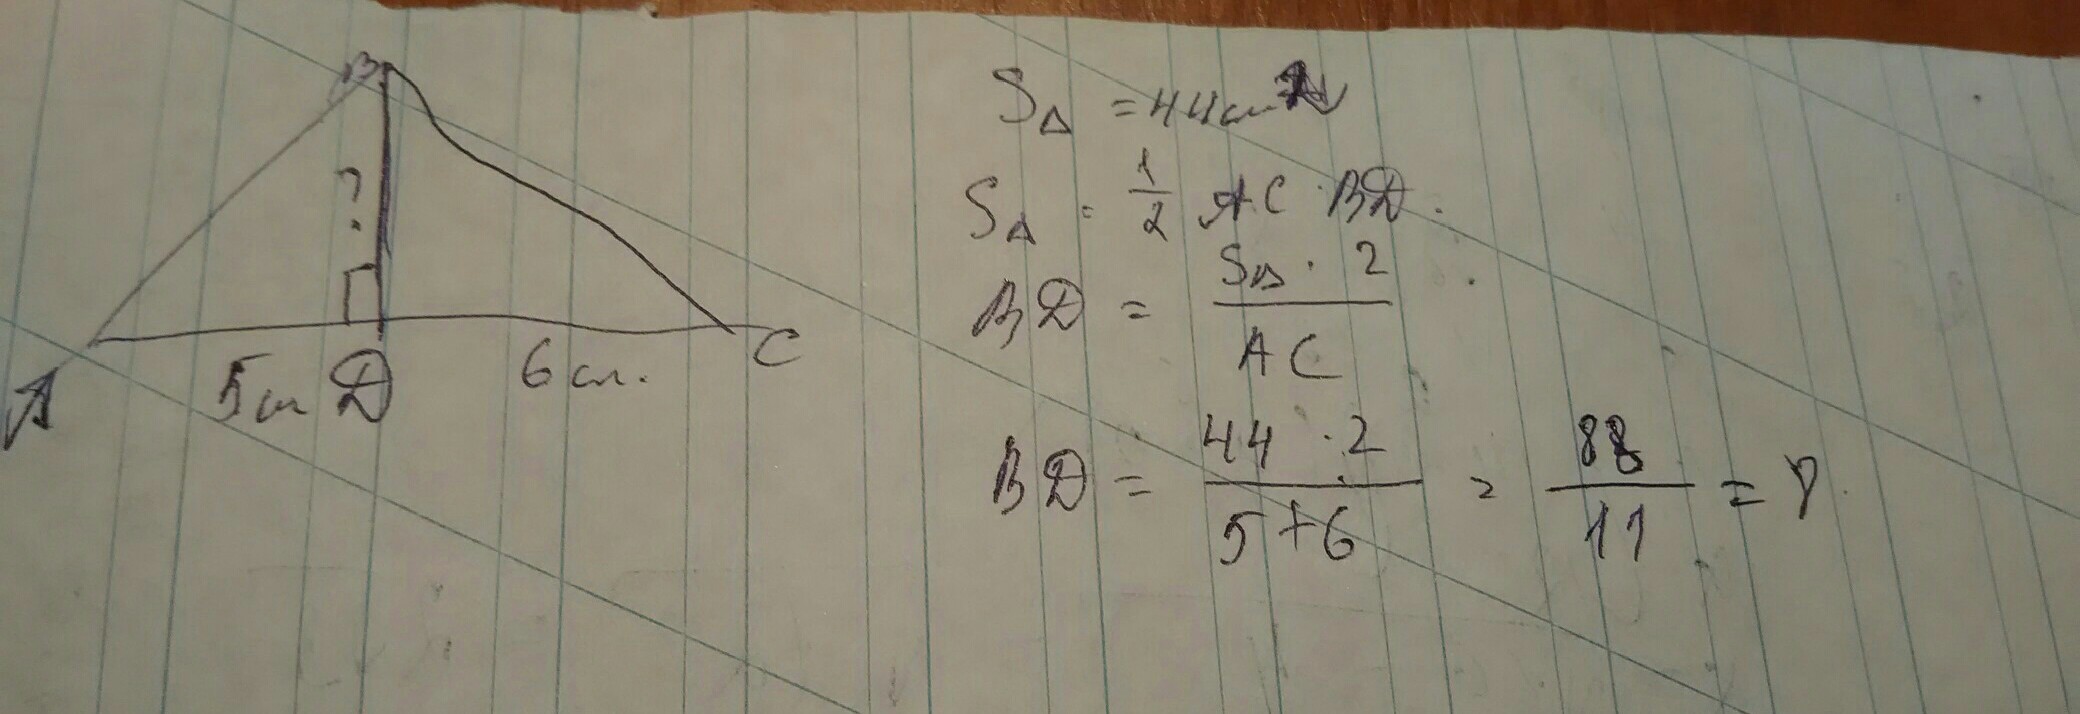 B
?
A 5см D 6см. C
S△ = 44см
S△ = 1/2 AC · BD.
BD = S△ · 2 / AC
BD = 44 · 2 / 5+6 = 88 / 11 = 8